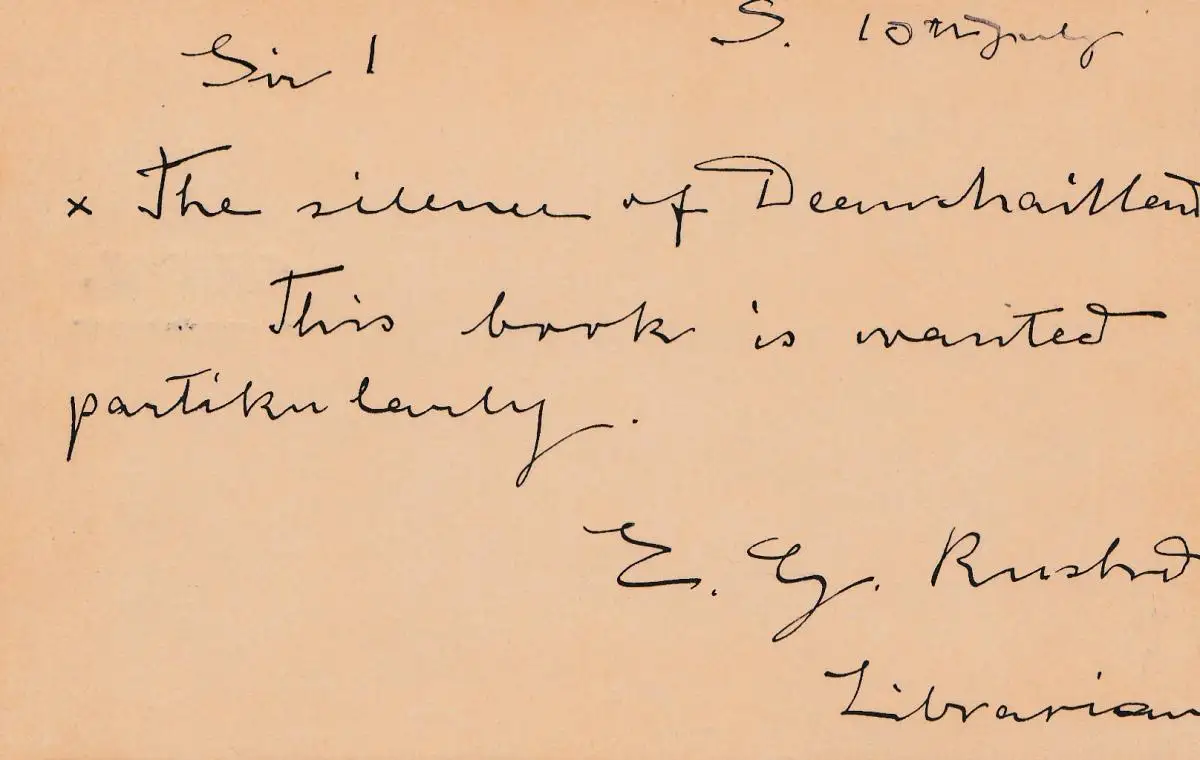 S. 10th July
Sir!
x The silence of Dean Maitland
This book is wanted
partikularly.
E. G.
Librarian